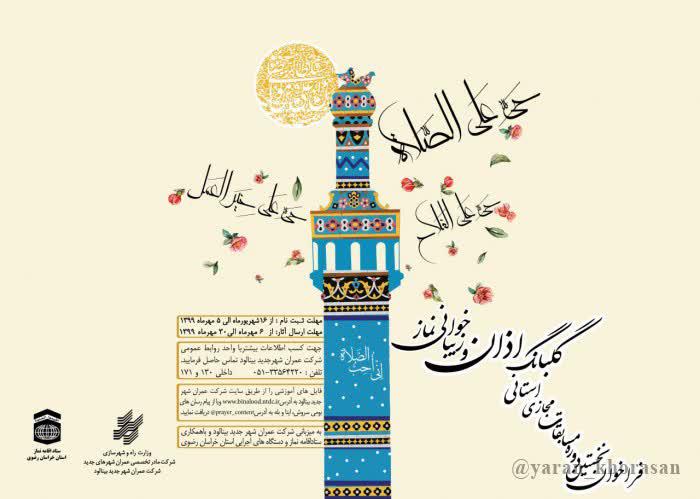 حی علی الصلاة
حی علی الفلاح
حی علی خیر العمل
گلبانگ اذان و زیباخوانی نماز
فراخوان نخستین دوره مسابقات مجازی استانی
مهلت ثبت نام : از ۱۶شهریورماه الی ۵ مهرماه ۱۳۹۹
مهلت ارسال آثار: از ۶ مهرماه الی ۳۰ مهرماه ۱۳۹۹
جهت کسب اطلاعات بیشتر با واحد روابط عمومی
شرکت عمران شهر جدید بینالود تماس حاصل فرمایید.
تلفن : ۳۳۵۶۴۲۲۰-۰۵۱ داخلی ۱۳۰ و ۱۷۱
فایل های آموزشی را از طریق سایت شرکت عمران شهر
جدید بینالود به آدرس www.binalood.ntdc.ir و یا از پیام رسان های
بومی سروش، ایتا و بله به آدرس @prayer_content دریافت نمایید.
به میزبانی شرکت عمران شهر جدید بینالود و باهمکاری
ستاداقامه نماز و دستگاه های اجرایی استان خراسان رضوی
ستاد اقامه نماز
استان خراسان رضوی
وزارت راه و شهرسازی
شرکت مادر تخصصی عمران شهرهای جدید
شرکت عمران شهر جدید بینالود
@yaran_khorasan